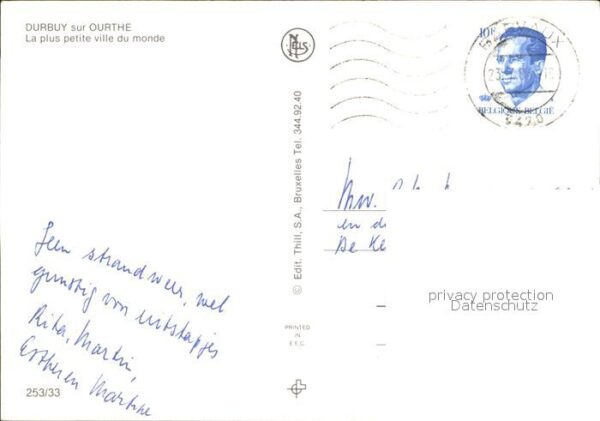 DURBUY sur OURTHE
La plus petite ville du monde
NELS
10F
BELGIQUE-BELGIË
5420
© Edit. Thill, S.A., Bruxelles Tel. 344.92.40
PRINTED
IN
E.E.C.
Mw.
en de
De Ke
Geen strandweer, wel
gunstig voor uitstapjes
Rita, Martin,
Esther en Martine
253/33
privacy protection
Datenschutz